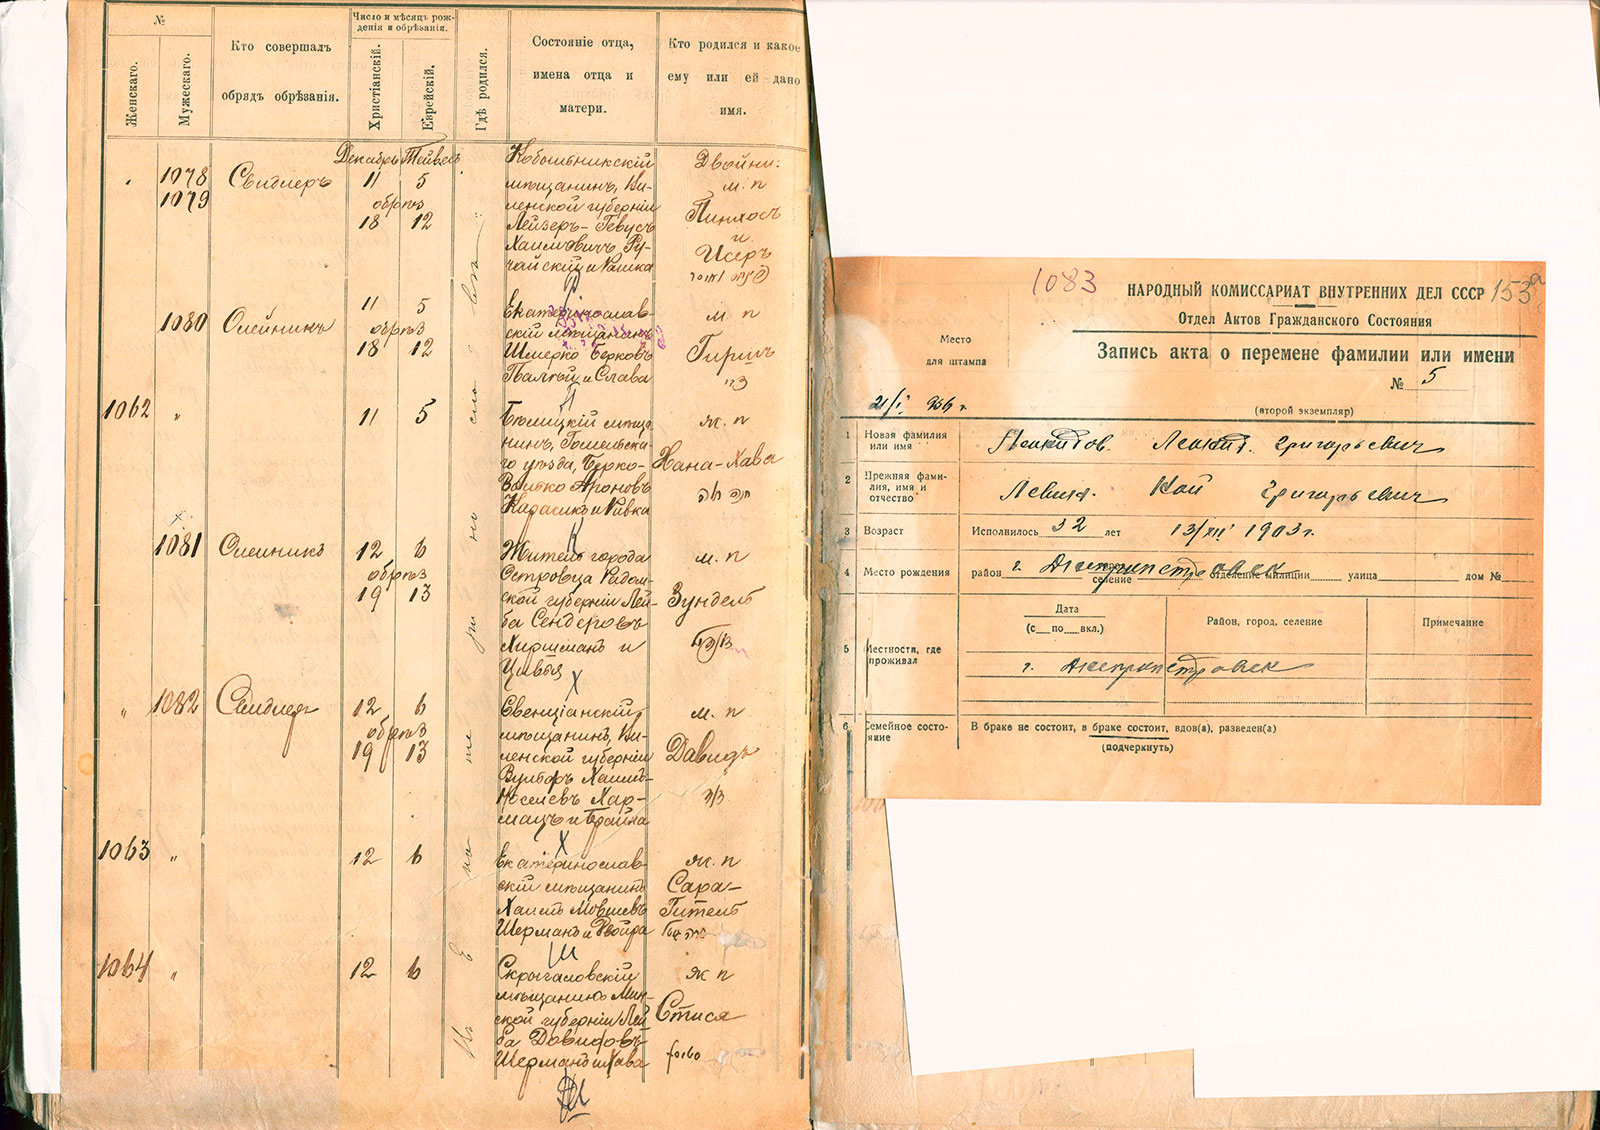 №
Женскаго.
Мужескаго.
Кто совершалъ
обрядъ обрѣзанія.
Число и мѣсяцъ рож-
денія и обрѣзанія.
Христіанскій.
Еврейскій.
Гдѣ родился.
Состояніе отца,
имена отца и
матери.
Кто родился и какое
ему или ей дано
имя.
Декабрь Тейвесъ
1078
1079
Свидлеръ
11 5
обрѣз
18 12
мѣщанинъ, Ви-
ленской губерніи
Лейзеръ-
Хаимовичъ Ру-
чайскій и Рашка
Двойни.
м. п
Пинхосъ
и
Исеръ
1080
Олейникъ
11 5
обрѣз
18 12
Екатеринослав-
скій мѣщанинъ
Шмерко Берковъ
и Слава
м п
Гиршъ
1062 "
11 5
нинъ, Гомельска-
го уѣзда, Берко-
Волько Ароновъ
Карасикъ и Ривка
ж. п
Хана-Хава
חנה חוה
1081
Олейникъ
12 6
обрѣз
19 13
Житель города
Островца Радом-
ской губерніи Лей-
ба Сендеровъ
и
Цивья
м. п
Зундель
" 1082
Свидлер
12 6
обрѣз
19 13
Свенціанскій
мѣщанинъ, Ви-
ленской губерніи
Хаимъ-
Іоселевъ Хар-
мацъ и Брайна
м. п
Давидъ
1063 "
12 6
Екатеринослав-
скій мѣщанинъ
Хаимъ Мовшевъ
Шерманъ и Двойра
ж. п
Сара-
Гитель
1064 "
12 6
Скрыгаловскій
мѣщанинъ Мин-
ской губерніи Лей
ба Давидовъ
Шерман и Хава
ж п
Стися
Въ Екатеринославѣ
1083
153а
НАРОДНЫЙ КОМИССАРИАТ ВНУТРЕННИХ ДЕЛ СССР
Отдел Актов Гражданского Состояния
Место
для штампа
Запись акта о перемене фамилии или имени
№ 5
21/I 936 г.
(второй экземпляр)
1 Новая фамилия
или имя
Леонидов. Леонид. Григорьевич
2 Прежняя фами-
лия, имя и
отчество
Левин. Григорьевич
3 Возраст Исполнилось 32 лет 13/XII 1903 г.
4 Место рождения район г. Днепропетровск селение отделение милиции улица дом №
5 Местности, где
проживал
Дата
(с по вкл.)
Район, город, селение
Примечание
г. Днепропетровск
6 Семейное состо-
яние
В браке не состоит, в браке состоит, вдов(а), разведен(а)
(подчеркнуть)